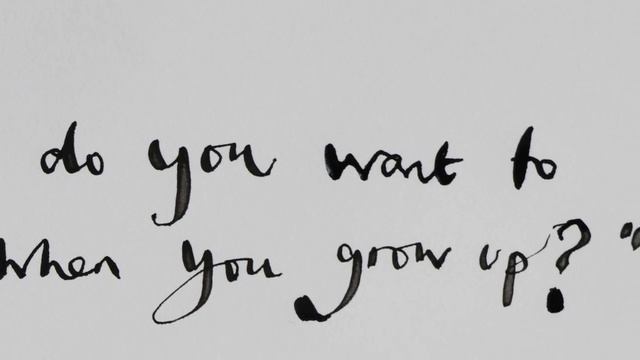 do you want to
when you grow up?"